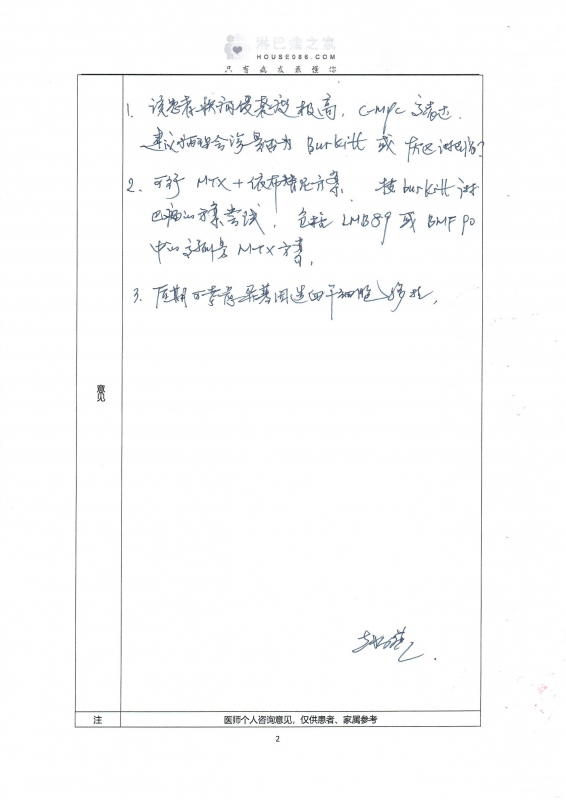 淋巴瘤之家
HOUSE086.COM
只有病友最懂你
1. 该患者 极高, C-MYC 高表达
建议病理会诊是否为 Burkitt 或
2. 可行 MTX + 方案, 按 burkitt 淋
巴瘤的方案尝试, 包括 LMB89 或 BMF90
中的高剂量 MTX 方案,
3. 后期可考虑异基因造血干细胞移植,
意见
注 医师个人咨询意见，仅供患者、家属参考
2